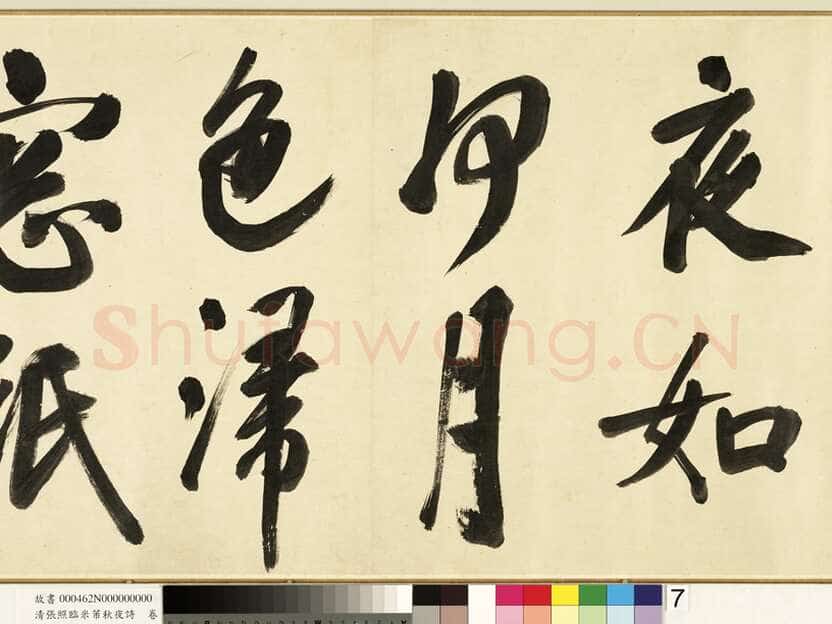 夜如
何月
色帰
窓紙
Shufawang.CN
故書 000462N000000000
清張照臨米芾秋夜詩 卷
7